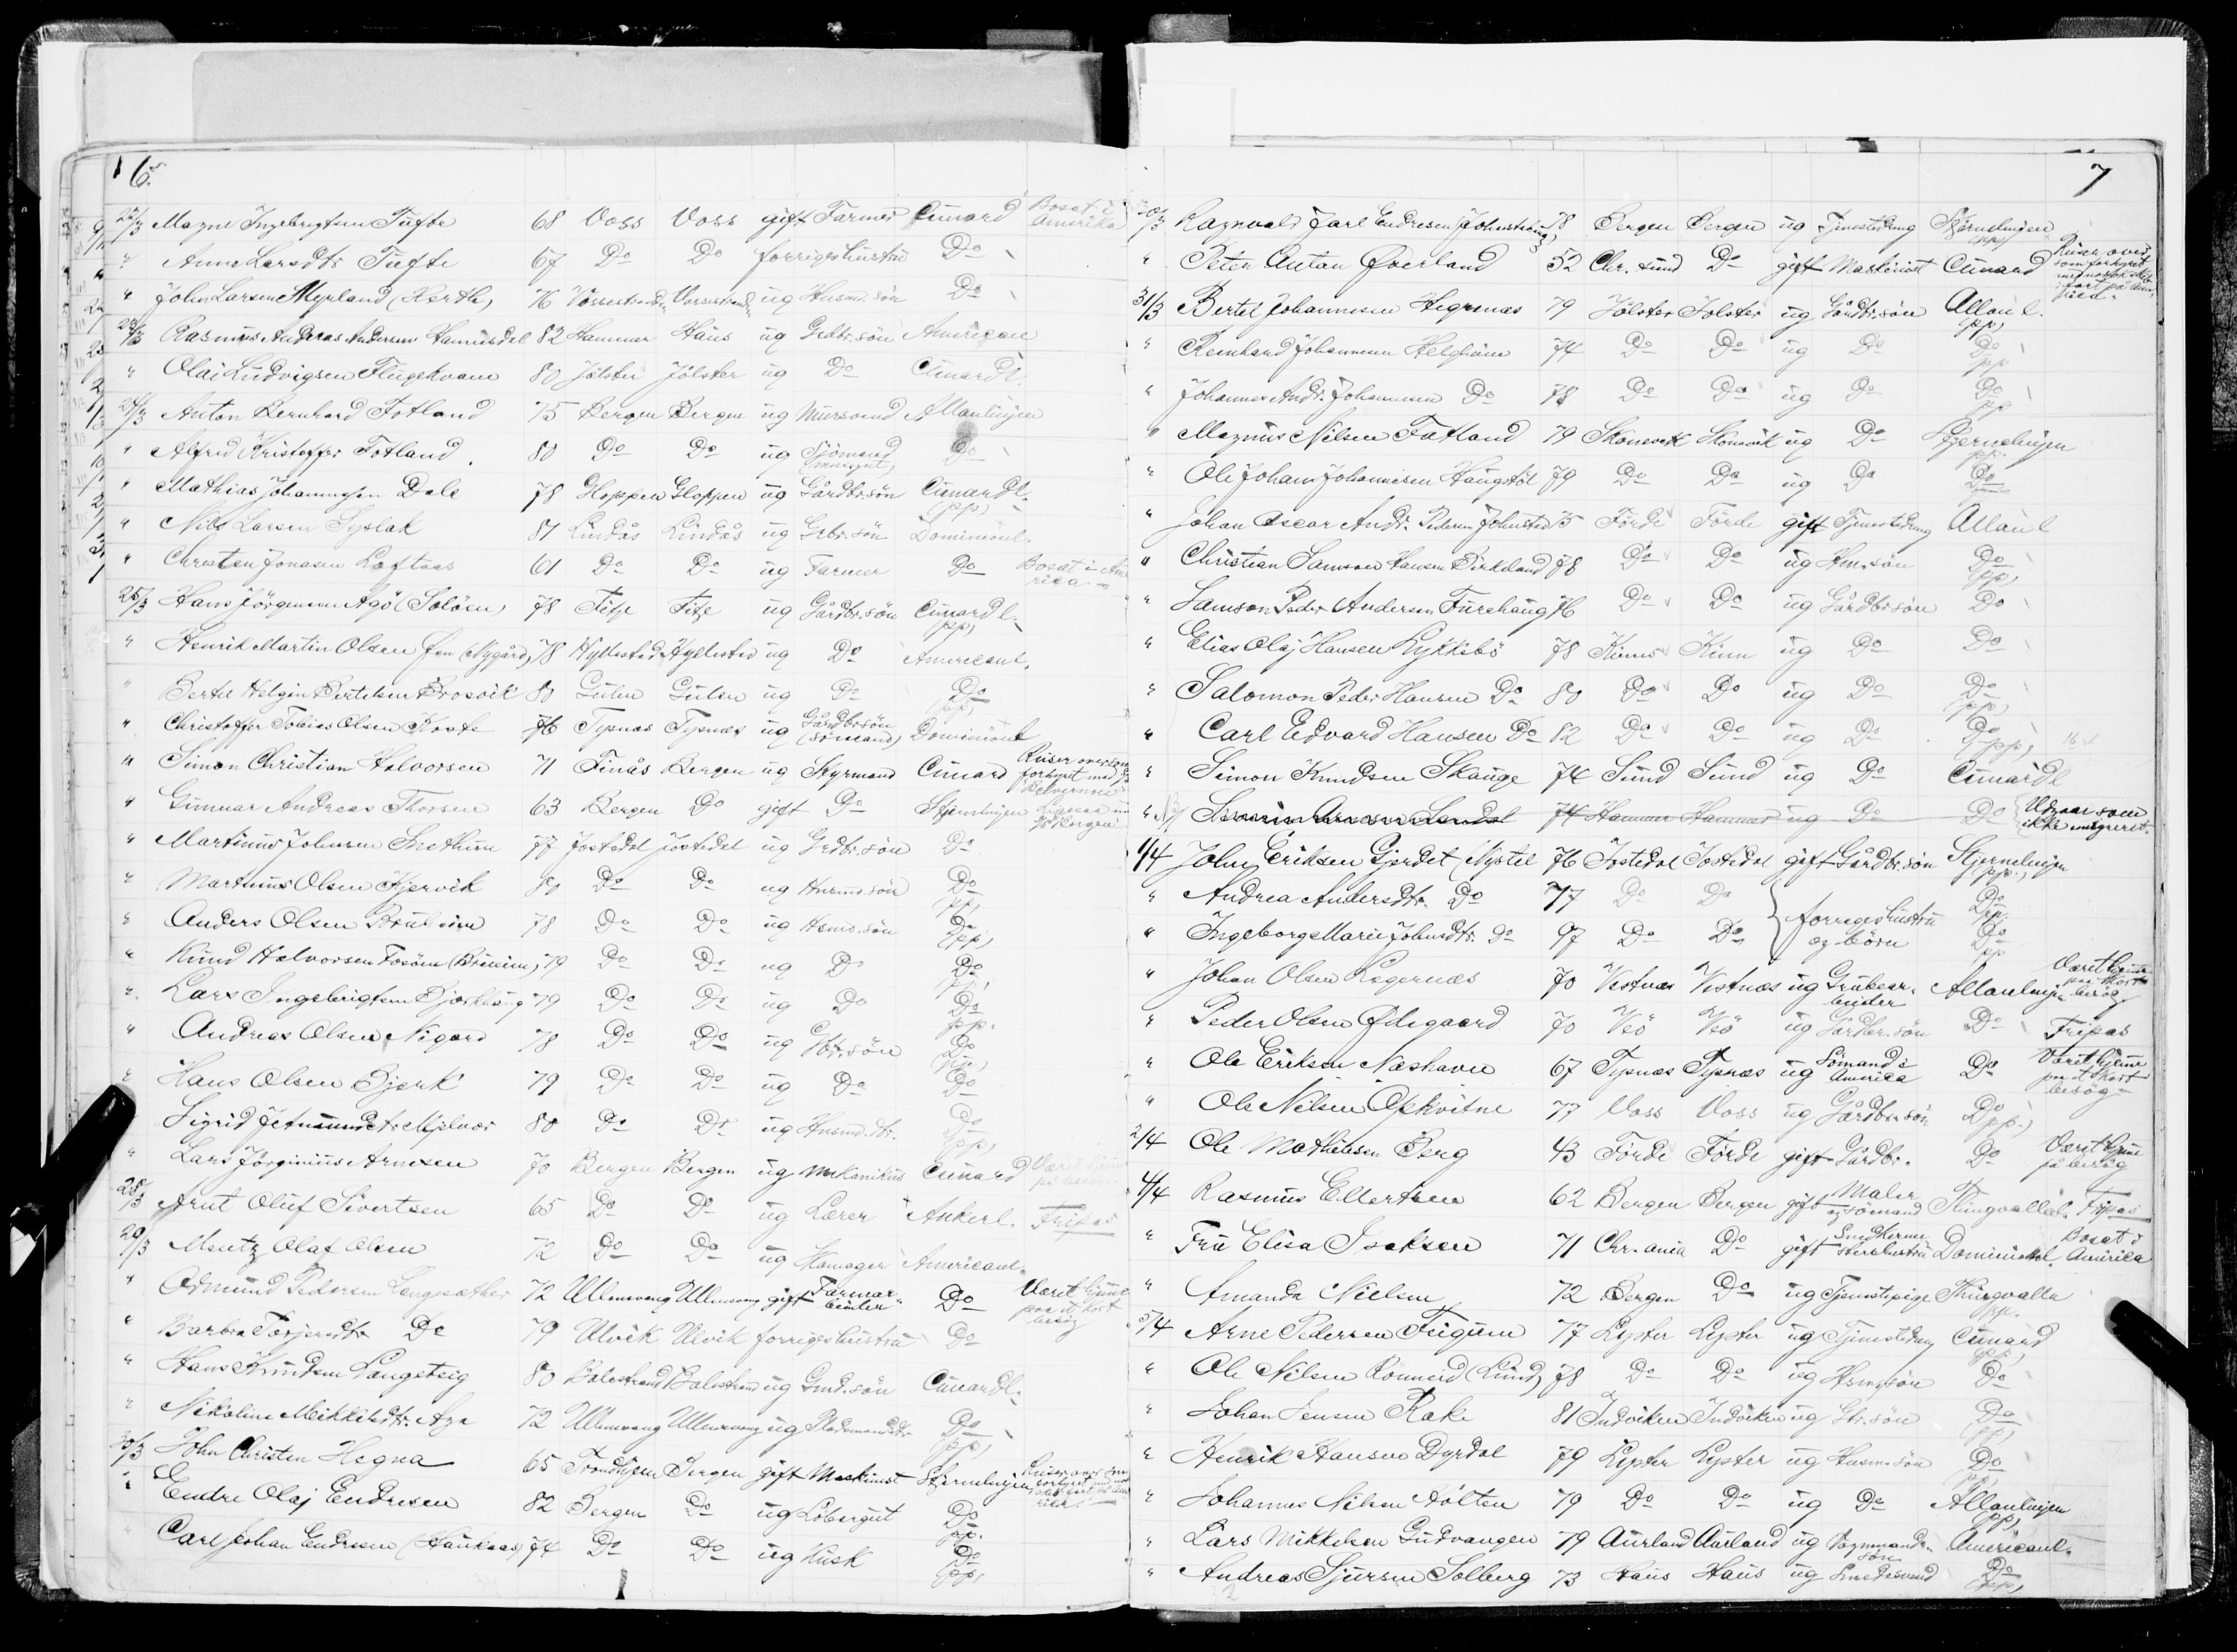 6.
22/3 Magne Ingebrigtsen Tufte 68 Voss Voss gift Farmer Cunard Bosat i Amerika
" Anna Larsdtr. Tufte 67 Do Do forriges hustru Do
" John Larsen Myrland 76 Vossestranden Vossestranden ug Husm. søn Do
23/3 Rasmus Andreas Andersen 82 Hammer Haus ug Grdbr. søn American
" Olai Ludvigsen Flugekvam 80 Jölster Jölster ug Do Cunardl.
24/3 Anton Bernhard Fotland 75 Bergen Bergen ug Mursvend Allanlinjen
" Alfred Kristoffer Fotland 80 Do Do ug Sjömand Do
" Mathias Johannesen Dale 78 Gloppen Gloppen ug Gårdbr. søn Cunardl. (pp)
" Nils Larsen Syslak 81 Lindås Lindås ug Grbr. søn Dominionl.
" Christen Jonasen Loftaas 61 Do Do ug Farmer Do Bosat i Amerika
25/3 Hans Jörgensen Agö (Solöen) 78 Fitje Fitje ug Gårdbr. søn Cunardl. (pp)
" Henrik Martin Olsen (Nygård) 78 Hyllestad Hyllestad ug Do Americanl.
" Berte Helgin Bertelsen Brosvik 80 Gulen Gulen ug Do Do (pp)
" Christoffer Tobias Olsen 76 Tysnæs Tysnæs ug Gårdbr. søn (sömand) Dominionl
" Simon Christian Halvorsen 71 Finås Bergen ug Styrmand Cunard Reiser over som forhyret med
" Gunnar Andreas Thorsen 63 Bergen Do gift Do Stjernelinjen
" Martinus Johnsen Snethun 77 Jostedal Jostedal ug Grdbr. søn Do
" Martinus Olsen Kjervik 80 Do Do ug Husmd. søn Do pp,
" Anders Olsen Bruheim 78 Do Do ug Hsmd. søn Do (pp)
" Knud Halvorsen Fosøen (Bruheim) 79 Do Do ug Do Do pp,
" Lars Ingebrigtsen Bjørkhaug 79 Do Do ug Do Do pp.
" Andreas Olsen Nigard 78 Do Do ug Gbr. søn Do (pp)
" Hans Olsen Bjerk 79 Do Do ug Do Do
Sigrid Jetmundsdtr. Mjelvær 80 Do Do ug Husmd. dtr. Do (pp)
" Lars Jörginius Arnesen 70 Bergen Bergen ug Mekanikus Cunard
28/3 Arnt Oluf Sivertsen 65 Do Do ug Lærer Ankerl. Fripas
29/3 Mentz Olaf Olsen 72 Do Do ug Americanl.
" Odmund Pedersen Langesæther 72 Ullensvang Ullensvang gift Farmarbeider Do Været hjemme paa et kort besög
" Barbra Torjersdtr. Do 79 Ulvik Ulvik forriges hustru Do
" Hans Knudsen Langeteig 80 Balestrand Balestrand ug Gmd. søn Cunardl.
" Nikoline Mikkelsdtr. Aga 72 Ullensvang Ullensvang ug Do (pp)
30/3 John Christen Hegna 65 Trondhjem Bergen gift Maskinist Stjernelinjen
" Endre Olaj Endresen 82 Bergen Do ug Löbergut Do pp.
" Carl Johan Endresen (Haukaas) 74 Do Do ug Kusk Do (pp)
7
30/3 Ragnvald Jarl Endresen 78 Bergen Bergen ug Tjenestedreng Stjernelinjen (pp)
" Peter Anton Øverland 52 Chr. sund Do gift Maskinist Cunard Reiser over som forhyret med norsk skib i fart på Amerika
31/3 Bertel Johannesen Hegrenæs 79 Jölster Jolster ug Gårdbr. søn Allan l. pp,
" Reinhard Johannesen Helgheim 74 Do Do ug Do Do pp
" Johannes Andr. Johannesen Do 78 Do Do ug Do Do pp
" Magnus Nilsen Fatland 79 Skonevik Skonevik ug Do Stjernelinjen pp.
" Ole Johan Johannesen Haugstöl 79 Do Do ug Do Do
" Johan Oscar Andr. Pedersen 75 Förde Förde gift Tjenestedreng Allanl
" Christian Samson Hansen Birkeland 78 Do Do ug Hm. søn Do (pp)
" Samson Peder Andersen Furehaug 76 Do Do ug Gårdbr. søn Do
" Elias Olaj Hansen Lykkebö 78 Kinn Kinn ug Do Do
" Salomon Peder Hansen Do 80 Do Do ug Do Do (pp)
" Carl Edvard Hansen Do 82 Do Do ug Do Do (pp)
" Simon Knudsen Skauge 74 Sund Sund ug Do Cunardl
" 74 Hammer Hammer ug Do Do Udgaar som ikke emigreret.
1/4 John Eriksen Gjerdet (Nystel 76 Jostedal Jostedal gift Gårdbr. søn Stjernelinjen (pp.)
" Andrea Andersdtr. Do 77 Do Do forriges hustru og børn Do pp.
" Ingeborg Marie Johnsdtr. Do 97 Do Do Do pp
" Johan Olsen Legernæs 70 Vestnæs Vestnæs ug Grubearbeider Allanlinjen Været hjemme paa kort besög
" Peder Olsen Ødegaard 70 Veö Veö ug Gårdbr. søn Do Fripas
" Ole Eriksen Næshavn 67 Tysnæs Tysnæs ug Sömand i America Do Været hjemme paa et kort besög
" Ole Nilsen Opkvitne 77 Voss Voss ug Gårdbr. søn Do pp.)
2/4 Ole Mathiesen Berg 43 Förde Förde gift Gårdbr. Do Været hjemme på besög
4/4 Rasmus Ellertsen 62 Bergen Bergen gift Maler og sömand Thingvallal. Fripas
" Fru Elisa Isaksen 71 Chr.ania Do gift Snedkermesterhustru Dominionl. Bosat i America
" Amanda Nielsen 72 Bergen Do ug Tjenestepige Thingvalla pp.
5/4 Arne Pedersen Feigum 77 Lyster Lyster ug Tjenestedreng Cunard (pp)
" Ole Nilsen Rönneid (Lund) 78 Do Do ug Hsm. søn Do
" Johan Jensen Rake 81 Indviken Indviken ug Gbr. søn Do (pp)
" Henrik Hansen Dyrdal 79 Lyster Lyster ug Husm. søn Do pp,
" Johannes Nilsen Holten 79 Do Do ug Do Allanlinjen pp,
" Lars Mikkelsen Gudvangen 79 Aurland Aurland ug søn Americanl.
" Andreas Sjursen Solberg 73 Haus Haus ug Smedesvend Do (pp)
2